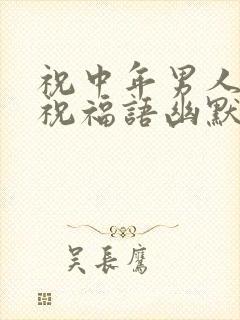 祝中年男人
祝福語幽默
吴長鹰